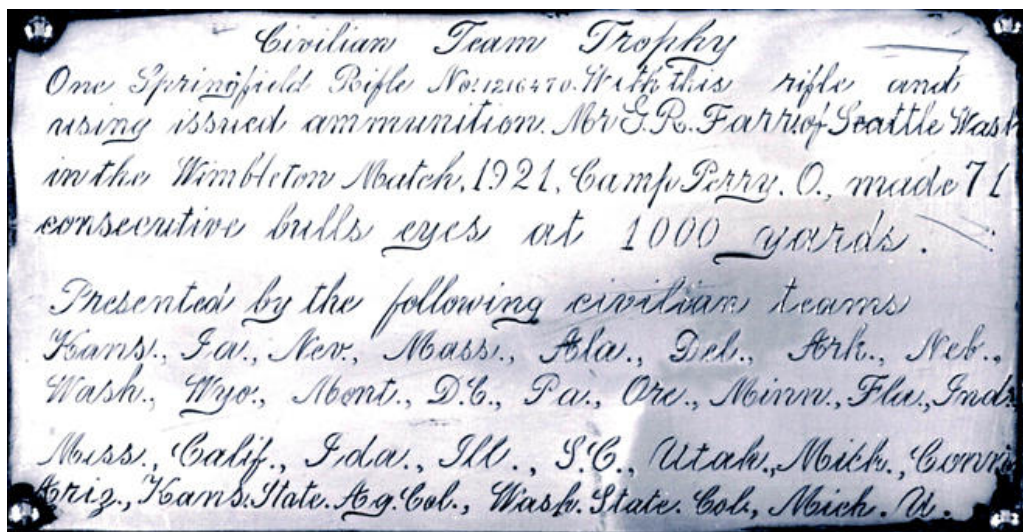 Civilian Team Trophy
One Springfield Rifle No. 1216470. With this rifle and
using issued ammunition. Mr G.R. Farr of Seattle Wash
in the Wimbleton Match, 1921, Camp Perry. O., made 71
consecutive bulls eyes at 1000 yards.
Presented by the following civilian teams
Kans., Ia., Nev., Mass., Ala., Del., Ark., Neb.,
Wash., Wyo., Mont., D.C., Pa., Ore., Minn., Fla., Ind.
Miss., Calif., Ida., Ill., S.C., Utah., Mich., Conn.
Ariz., Kans. State. Ag. Col., Wash. State. Col., Mich. U.